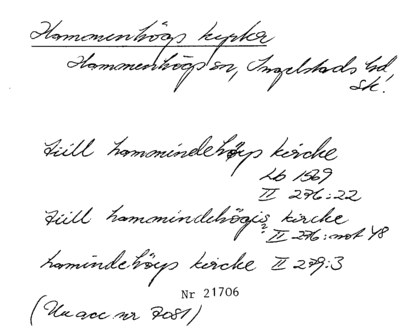 Hammenhögs kyrka
Hammenhögs sn, Ingelstads hd,
Sk.
tiill hammindehögs kircke
Lb 1569
II 276:22
tiill hammindehögis kircke
II 276: not 48
hamindehöys kircke II 279:3
Nr 21706
(Ua acc nr 7081)